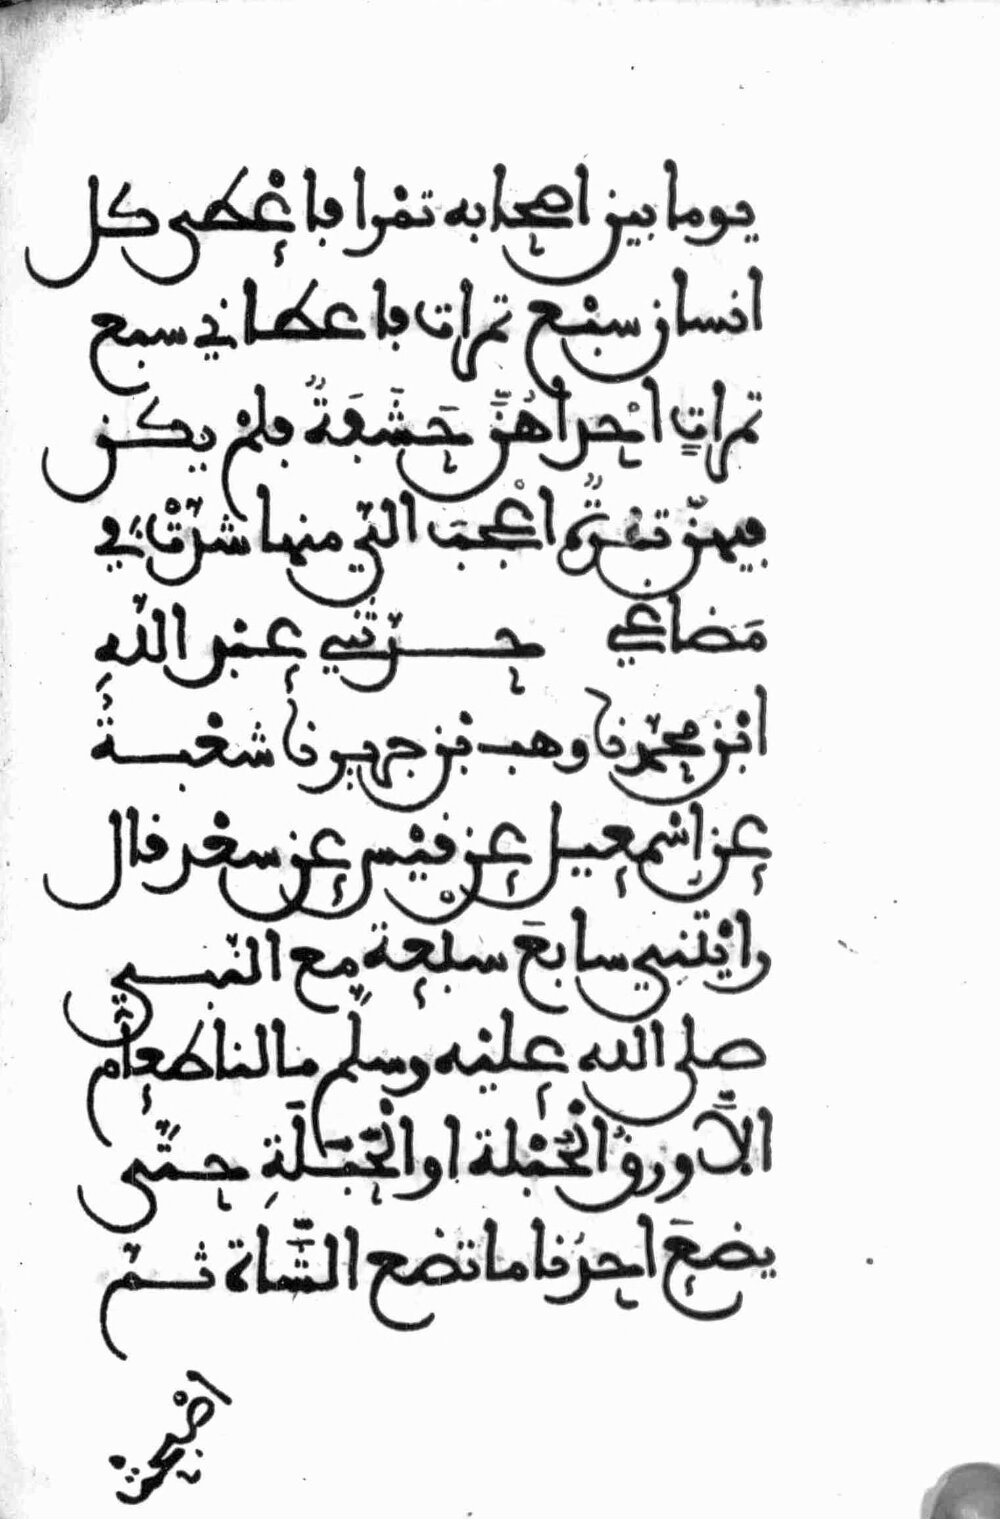 يوما بين اصحابه تمْرا فاعْطى كل
انسان سبْع تمرات فاعطاني سبع
تمراتٍ احْداهُنَّ حَشَفَةٌ فلمْ يكن
فيهنّ تمْرةٌ اعْجبَ الىّ منها شدّتْ في
مَضاغي حــدّثني عبْد اللّهِ
ابْن محمّد نا وهب بن جرير نا شعْبــةُ
عن اسْمعيل عن قيْس عن سعْد قال
رايْتني سابعَ سبعة مع النّبــي
صلى الله عليْه وسلّم ما لنا طعامٌ
الاَّ ورقُ الحُبْلة او الحَبَلَةِ حتّى
يضعَ احدُنا ما تضع الشَّاة ثــمّ
اصْبحتْ